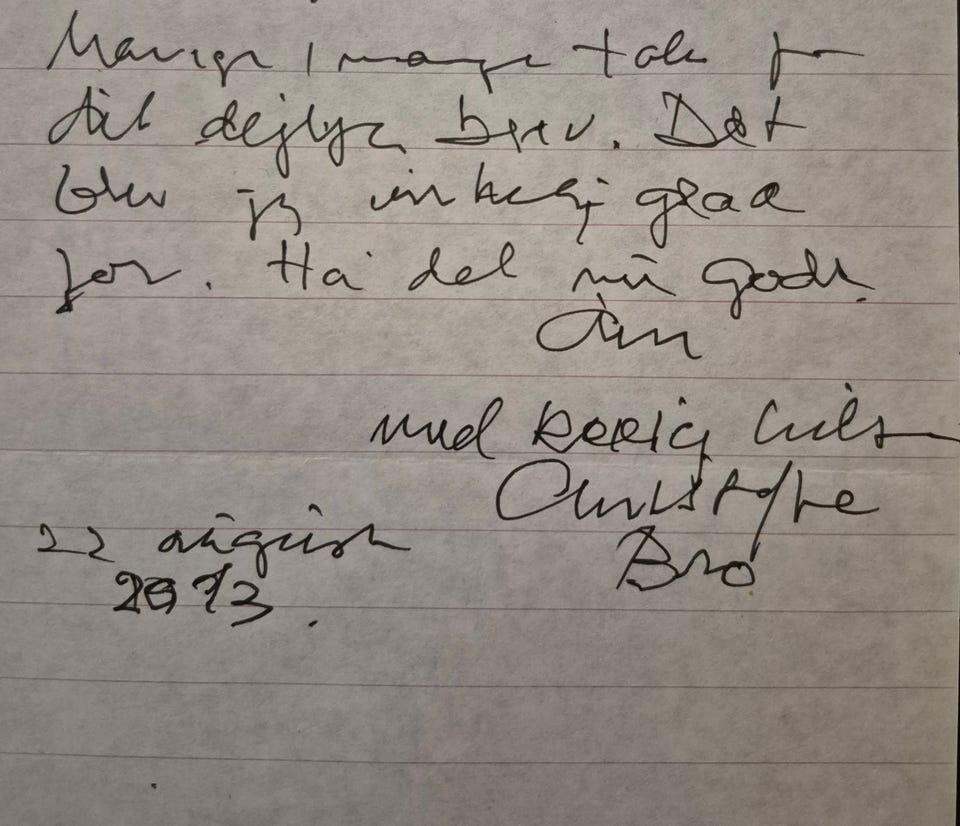 Mange, mange tak for
dit dejlige brev. Det
blev jeg virkelig glad
for. Ha' det nu godt.
Din
med kærlig hilsen
Christoffer
Bro
22 august
2013.